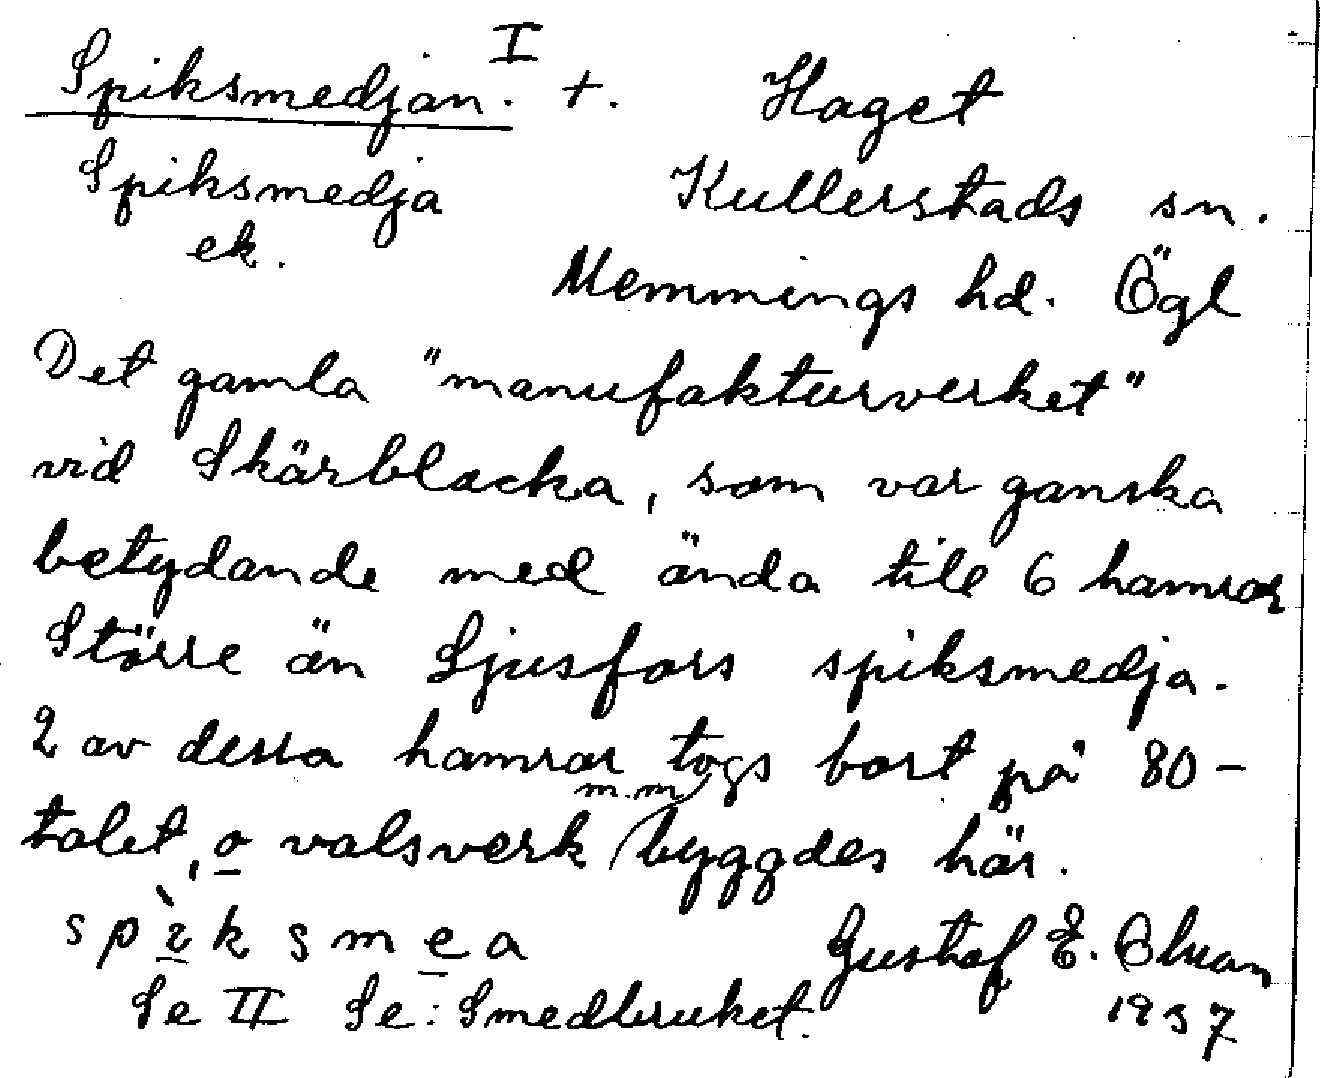 Spiksmedjan. I +. Haget
Spiksmedja Kullerstads sn.
ek. Memmings hd. Ögl
Det gamla "manufakturverket"
vid Skärblacka, som var ganska
betydande med ända till 6 hamrar
Större än Ljusfors spiksmedja.
2 av dessa hamrar togs bort på 80-
talet, o valsverk m.m byggdes här.
spìksmea Gustaf E. Olsson
Se II Se: Smedbruket. 1937